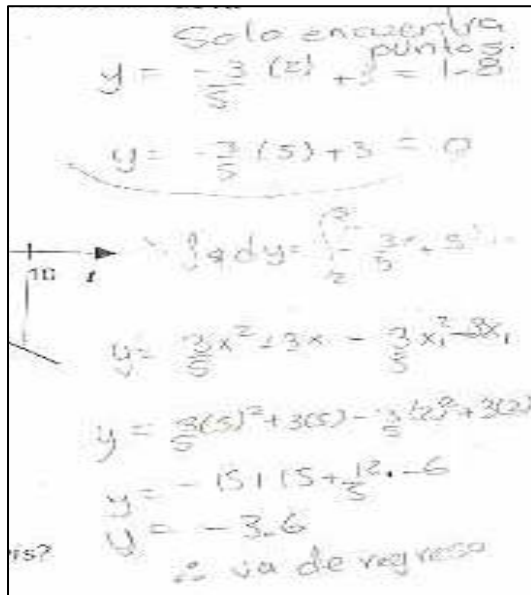 Solo encuentra
puntos.
y = -3/5 (2) + 3 = 1.8
y = -3/5 (5) + 3 = 0
dy =
10 t
y = 3/5 x² + 3x - 3/5 x₁² - 3x₁
y = 3/5 (5)² + 3(5) - 3/5 (2)² + 3(2)
y = -15 + 15 + 12/5 - 6
y = -3.6
∴ va de regreso
rs?